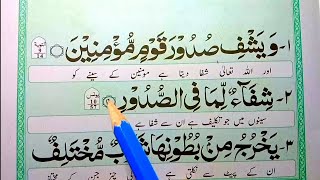 ۱- وَيَشْفِ صُدُورَ قَوْمٍ مُّؤْمِنِينَ
اور اللہ تعالیٰ شفا دیتا ہے مؤمنین کے سینے کو
۲- شِفَاءٌ لِّمَا فِي الصُّدُوْرِ
سینوں میں جو تکلیف ہے ان سے شفا ہے
۳- يَخْرُجُ مِنْ بُطُوْنِهَا شَرَابٌ مُّخْتَلِفٌ
ان کے پیٹ سے نکلتی ہے